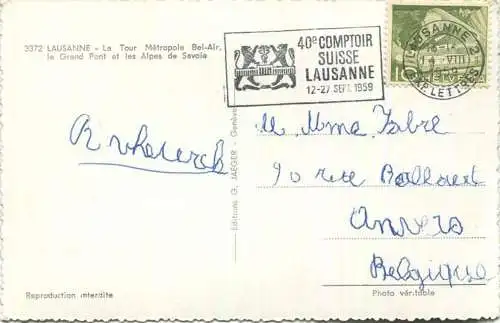 3372 LAUSANNE - La Tour Métropole Bel-Air,
le Grand Pont et les Alpes de Savoie
40e COMPTOIR
SUISSE
LAUSANNE
12-27. SEPT. 1959
LAUSANNE 2
VIII
EXP. LETTRES
M. Mme Fabre
90 rue
Anvers
Belgique
Editions G. JAEGER - Genève
Reproduction interdite
Photo véritable